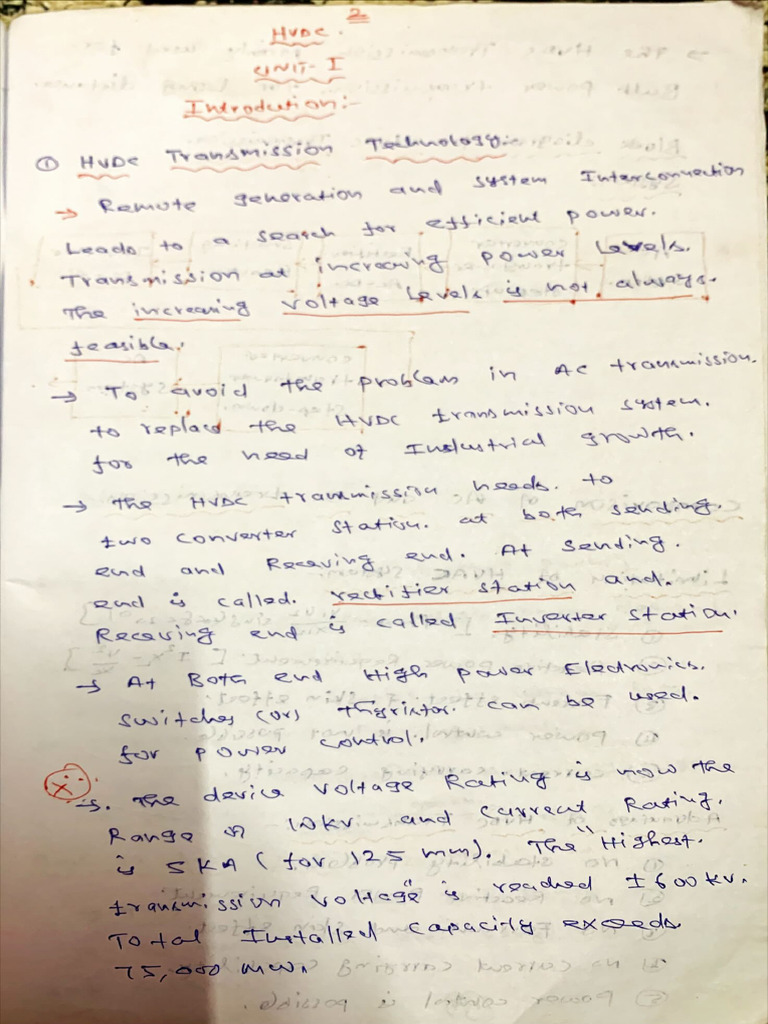 2
HVDC.
UNIT-I
Introduction:-
① HVDC Transmission Technology:-
→ Remote generation and system Interconnection
Leads to a search for efficient power.
Transmission at increasing power Levels.
The increasing voltage Levels is not always.
feasible.
→ To avoid the problem in AC transmission.
to replace the HVDC transmission system.
for the need of Industrial growth.
→ The HVDC transmission needs. to
two converter station. at both sending.
end and Receving end. At sending.
end is called. rectifier station and.
Receving end is called Inverter station.
→ At Both end High power Electronics.
switches (or) thyristor. can be used.
for power control.
→. The device voltage Rating is now the
Range of 10kv and current Rating.
is 5KA (for 125 mm). The "Highest.
transmission voltage" is reached ±600kv.
Total Installed capacity exceeds
75,000 mw.